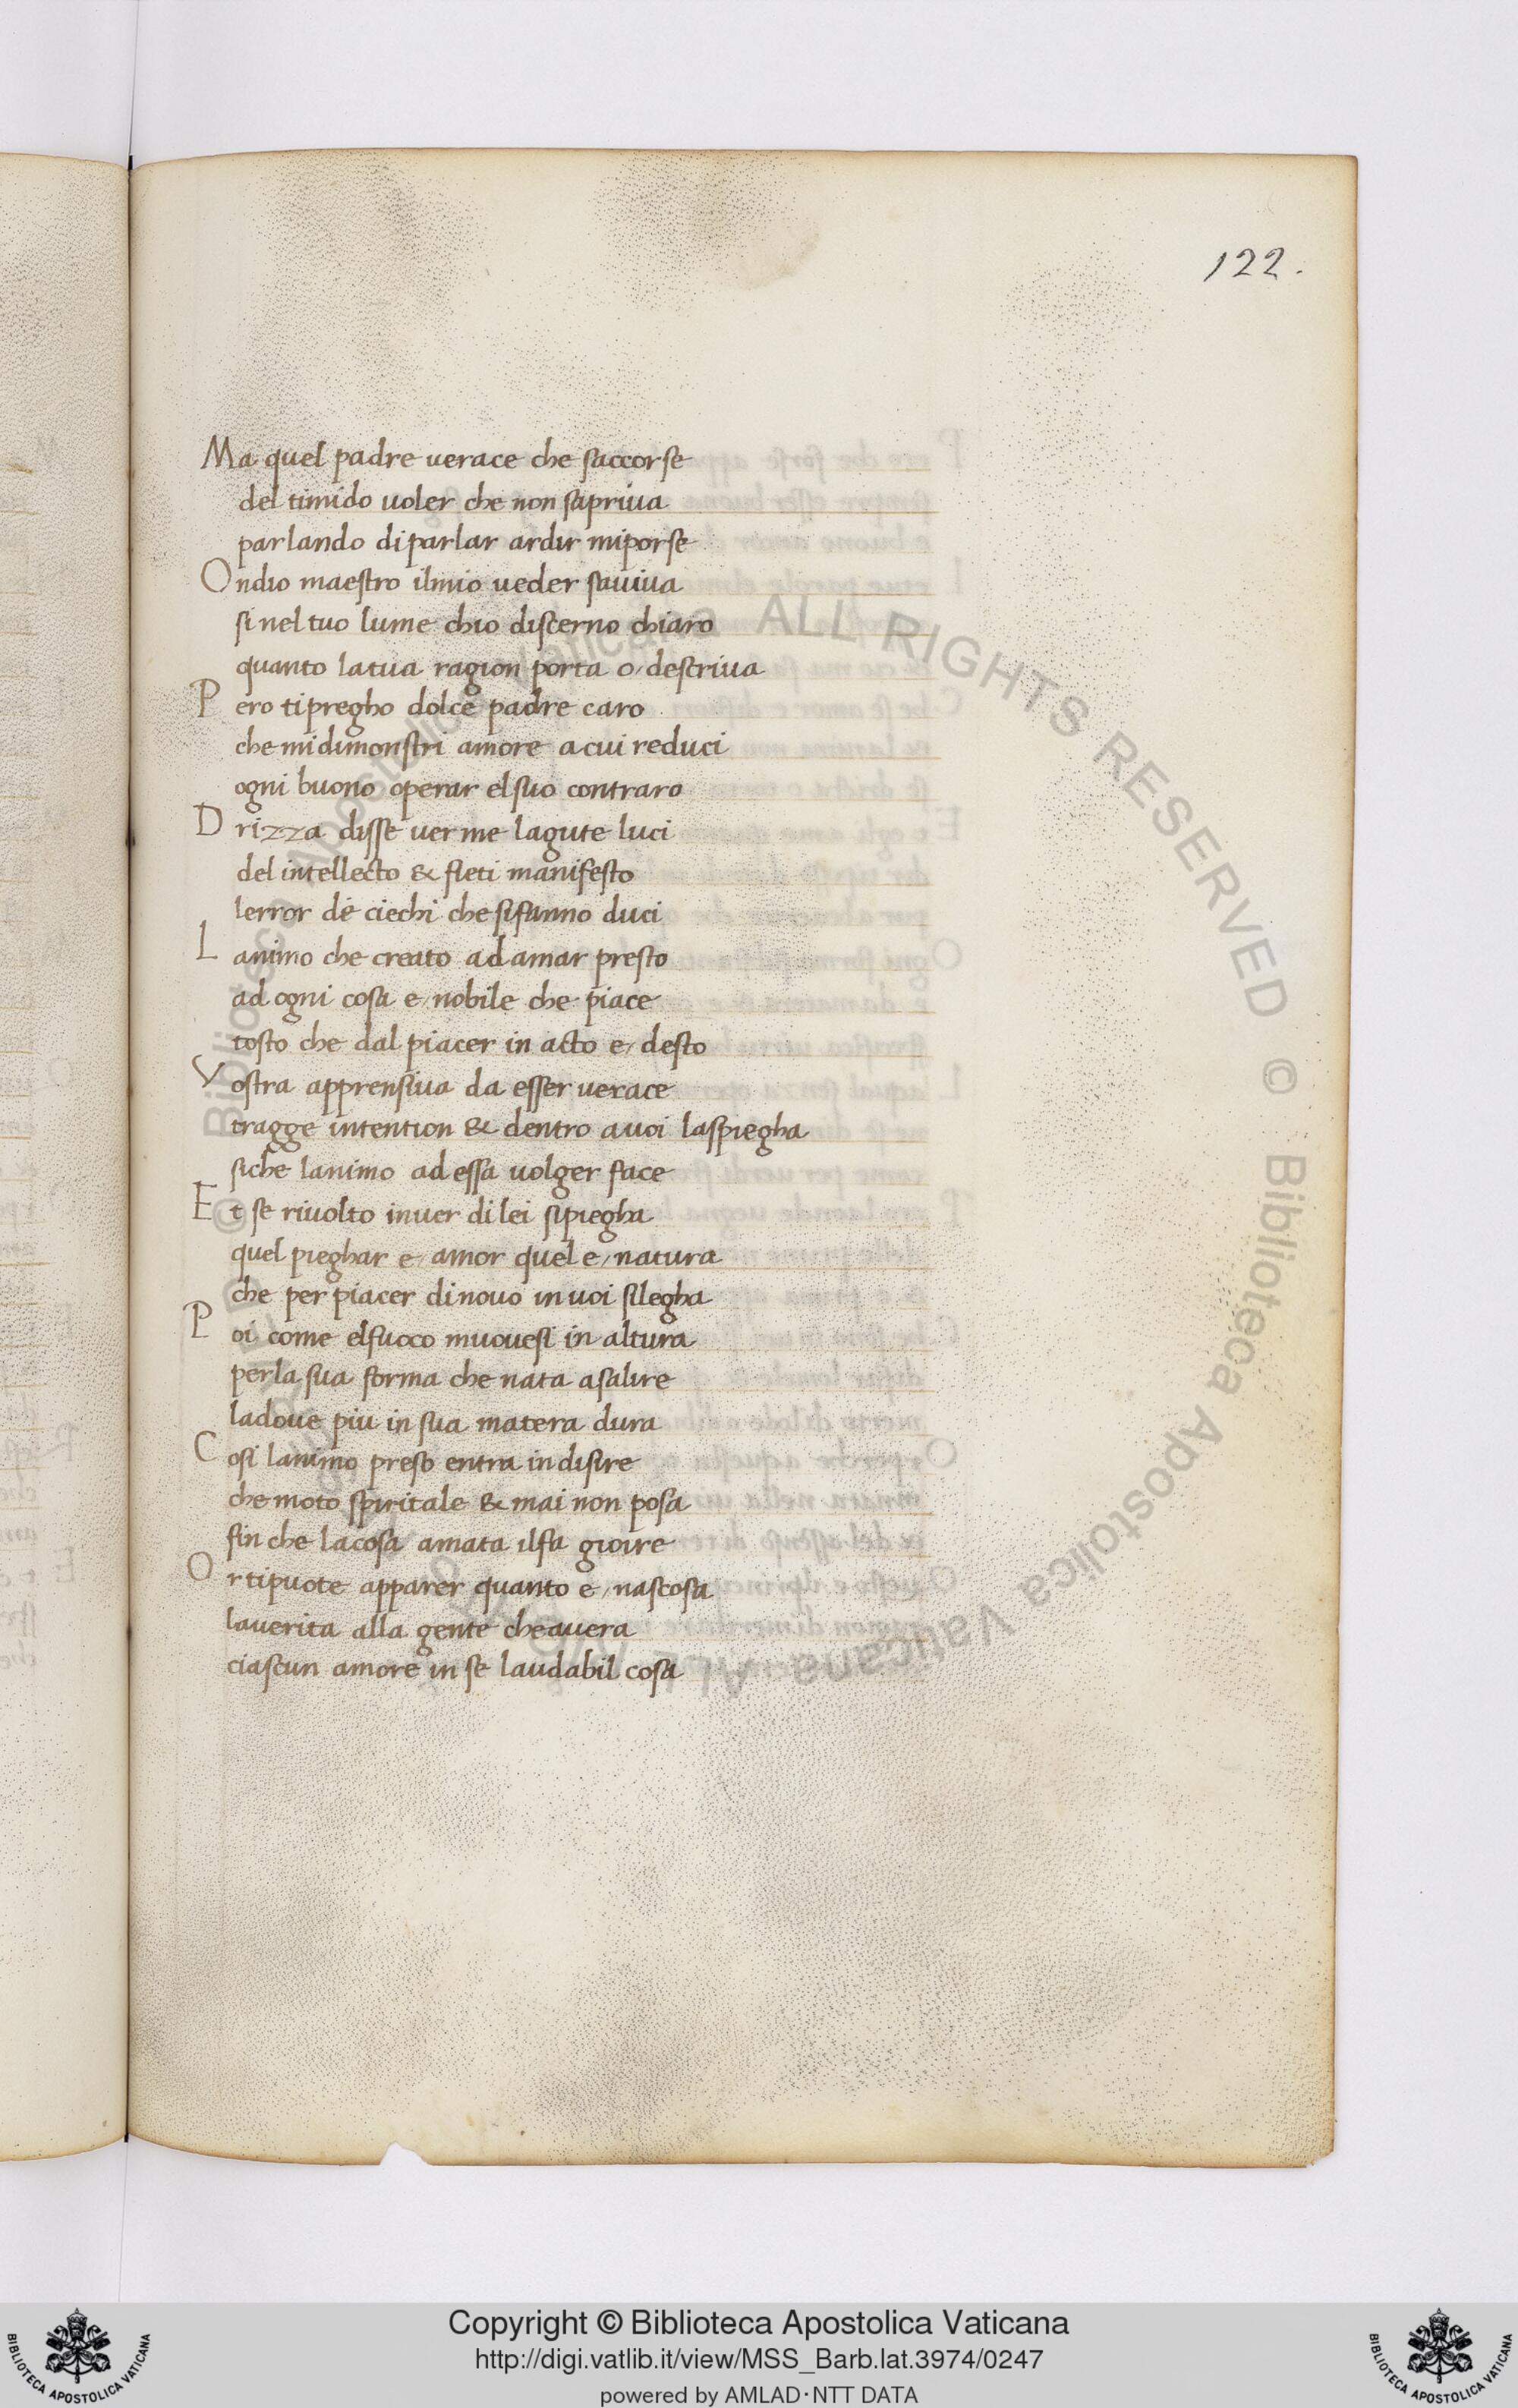 122.
Ma quel padre verace che saccorse
del timido voler che non sapriva
parlando diparlar ardir miporse
Ondio maestro ilmio veder savviva
si nel tuo lume chio discerno chiaro
quanto latua ragion porta o descriva
Pero tipregho dolce padre caro
che midimonstri amore acui reduci
ogni buono operar elsuo contraro
Drizza disse verme lagute luci
del intellecto & fieti manifesto
lerror de ciechi che sifanno duci
Lanimo che creato ad amar presto
ad ogni cosa e nobile che piace
tosto che dal piacer in acto e desto
Vostra apprensiva da esser verace
tragge intention & dentro avoi laspiegha
siche lanimo ad essa volger face
Et se rivolto inver dilei sipiegha
quel pieghar e amor quel e natura
che per piacer dinovo in voi silegha
Poi come elfuoco muovesi in altura
perla sua forma che nata asalire
ladove piu in sua matera dura
Cosi lanimo preso entra indisire
che moto spiritale & mai non posa
fin che lacosa amata ilfa gioire
Or tipuote apparer quanto e nascosa
laverita alla gente cheavera
ciascun amore in se laudabil cosa
© Biblioteca Apostolica Vaticana ALL RIGHTS RESERVED © Biblioteca Apostolica Vaticana
Copyright © Biblioteca Apostolica Vaticana
http://digi.vatlib.it/view/MSS_Barb.lat.3974/0247
powered by AMLAD·NTT DATA
BIBLIOTECA APOSTOLICA VATICANA
BIBLIOTECA APOSTOLICA VATICANA